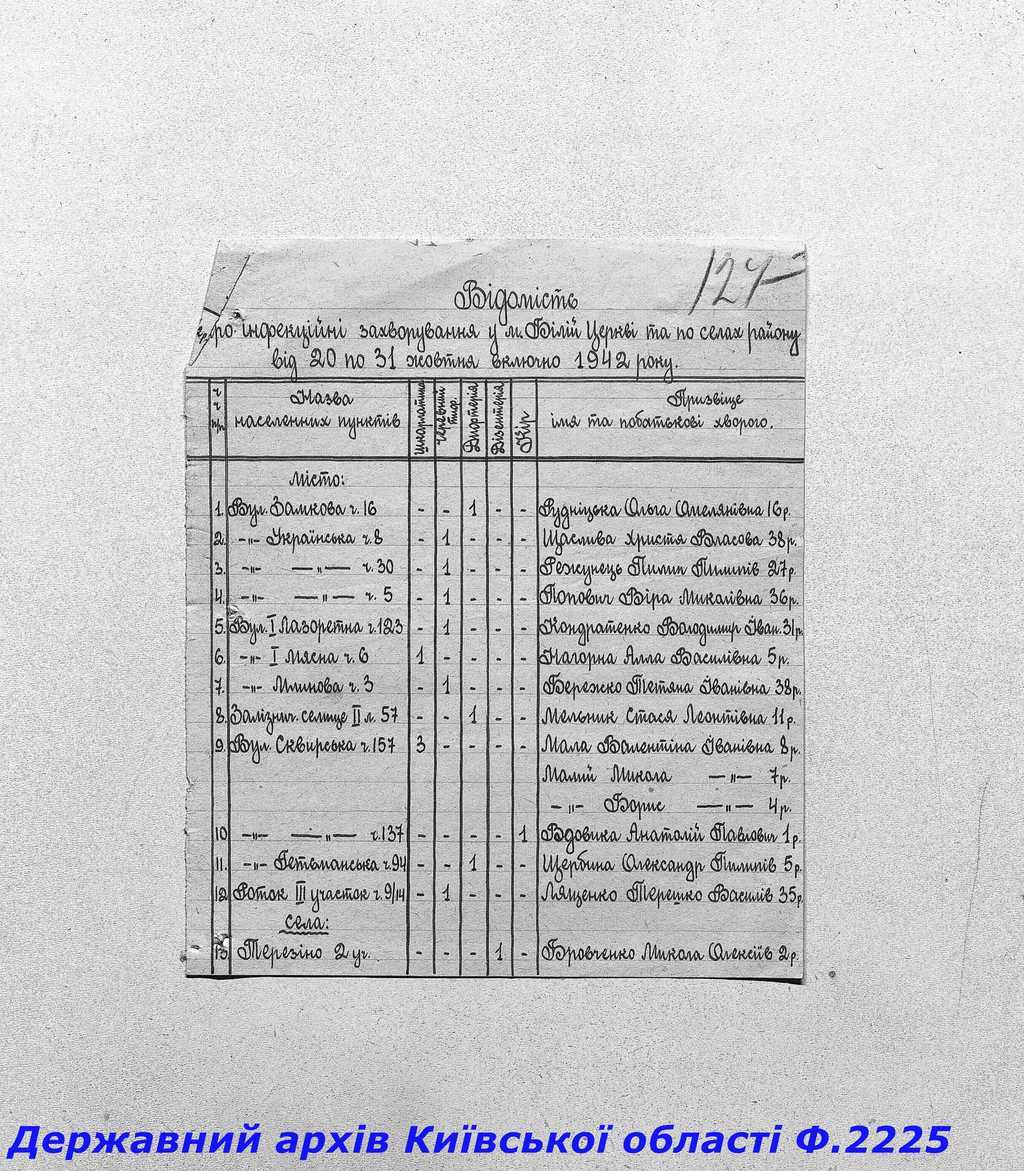 127
Відомість
про інфекційні захворування у м. Білій Церкві та по селах району
від 20 по 31 жовтня включно 1942 року.
ч ч п/п | Назва населенних пунктів | Шкарлатина | Черевний тиф. | Дифтерія | Дізентерія | Кір | Призвіще імя та побатькові хворого.
місто:
1. Вул. Замкова ч. 16 - - 1 - - Рудніцька Ольга Омелянівна 16 р.
2. -„- Українська ч. 8 - 1 - - - Щаслива Христя Власова 38 р.
3. -„- —„— ч. 30 - 1 - - - Режунець Пилип Пилипів 27 р.
4. -„- —„— ч. 5 - 1 - - - Попович Віра Миколівна 36 р.
5. Вул. I Лазоретна ч. 123 - 1 - - - Кондратенко Володимир Іван. 31 р.
6. -„- I Мясна ч. 6 1 - - - - Нагорна Алла Василівна 5 р.
7. -„- Млинова ч. 3 - 1 - - - Бережко Тетяна Іванівна 38 р.
8. Залізнич. селище II л. 57 - - 1 - - Мельник Стася Леонтівна 11 р.
9. Вул. Сквирська ч. 157 3 - - - - Мала Валентіна Іванівна 8 р.
Малий Микола —„— 7 р.
-„- Борис —„— 4 р.
10 -„- —„— ч. 137 - - - - 1 Вдовика Анатолій Павлович 1 р.
11. -„- Гетьманська ч. 94 - - 1 - - Щербина Олександр Пилипів 5 р.
12. Роток III участок ч. 9/14 - 1 - - - Лященко Терешко Василів 35 р.
села:
13. Терезіно 2 уч. - - - 1 - Бровченко Микола Олексіїв 2 р.
Державний архів Київської області Ф.2225